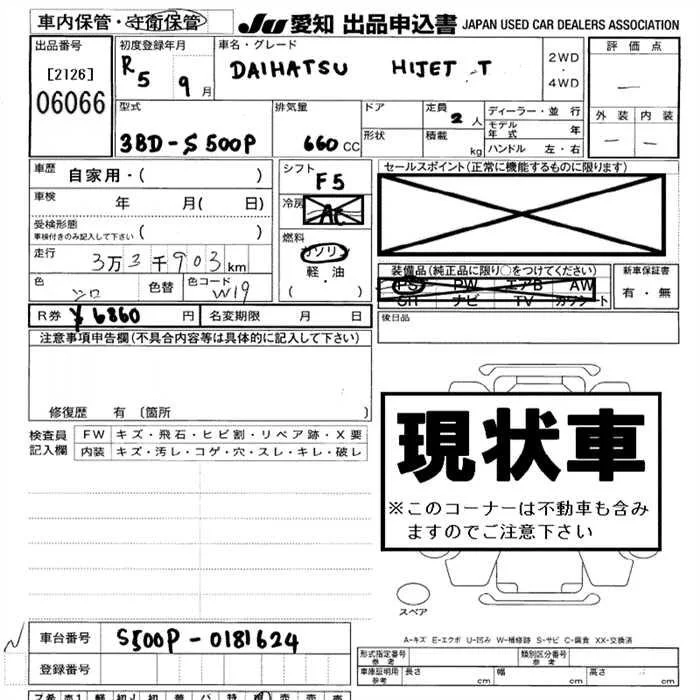 車内保管・守衛保管
JU 愛知 出品申込書 JAPAN USED CAR DEALERS ASSOCIATION
出品番号
[2126]
06066
初度登録年月
R5 9月
車名・グレード
DAIHATSU HIJET T
2WD
・
4WD
評価点
—
外装 内装
— —
型式
3BD-S500P
排気量
660cc
ドア
形状
定員
2人
積載
kg
ディーラー・並 行
モデル年式 年
ハンドル 左・右
車歴 自家用・( )
車検 年 月( 日)
受検形態
車検付きのみ記入して下さい ( )
走行 3万3千903km
色 シロ 色替 色コード W19
シフト
F5
冷房
AC
燃料
ガソリン
・
軽油
・
( )
セールスポイント(正常に機能するものに限ります)
装備品(純正品に限り○をつけてください)
PS PW エアB AW
SR ナビ TV カワシート
新車保証書
有・無
R券 ¥6860円 名変期限 月 日
後日品
注意事項申告欄(不具合内容等は具体的に記入して下さい)
修復歴 有 〔箇所 〕
検査員
記入欄
FW キズ・飛石・ヒビ割・リペア跡・X要
内装 キズ・汚レ・コゲ・穴・スレ・キレ・破レ
現状車
※このコーナーは不動車も含み
ますのでご注意下さい
スペア
A-キズ E-エクボ U-凹み W-補修跡 S-サビ C-腐食 XX-交換済
車台番号 S500P-0181624
登録番号
形式指定番号
参考
類別区分番号
参考
車庫証明用
参考
長さ cm 幅 cm 高さ cm